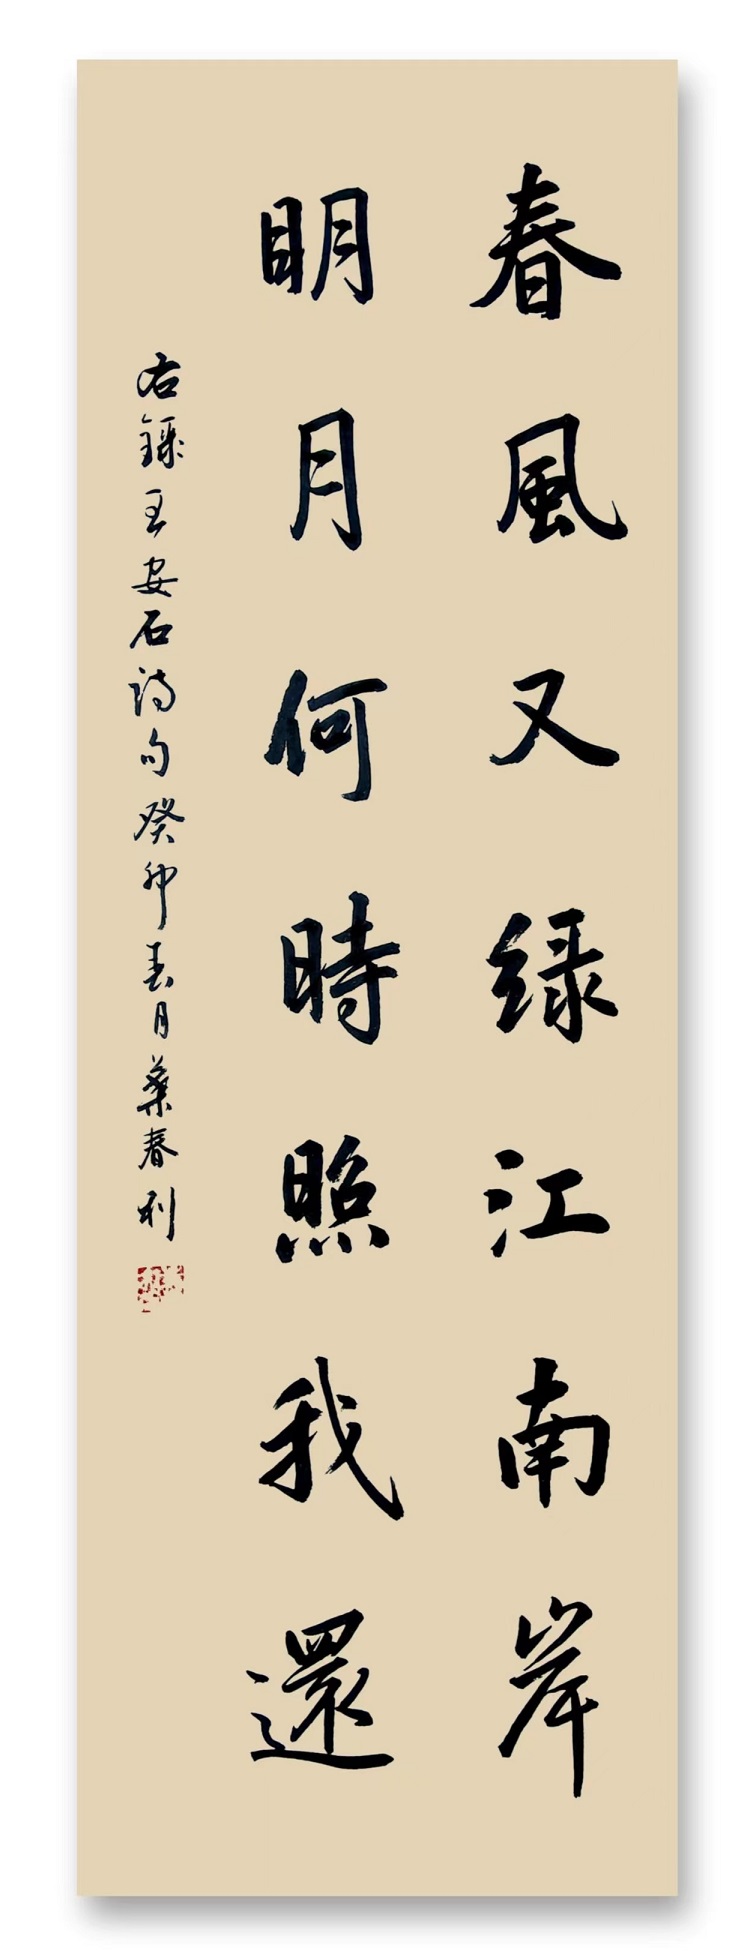 春風又緑江南岸
明月何時照我還
右錄王安石詩句癸卯春月桑春利